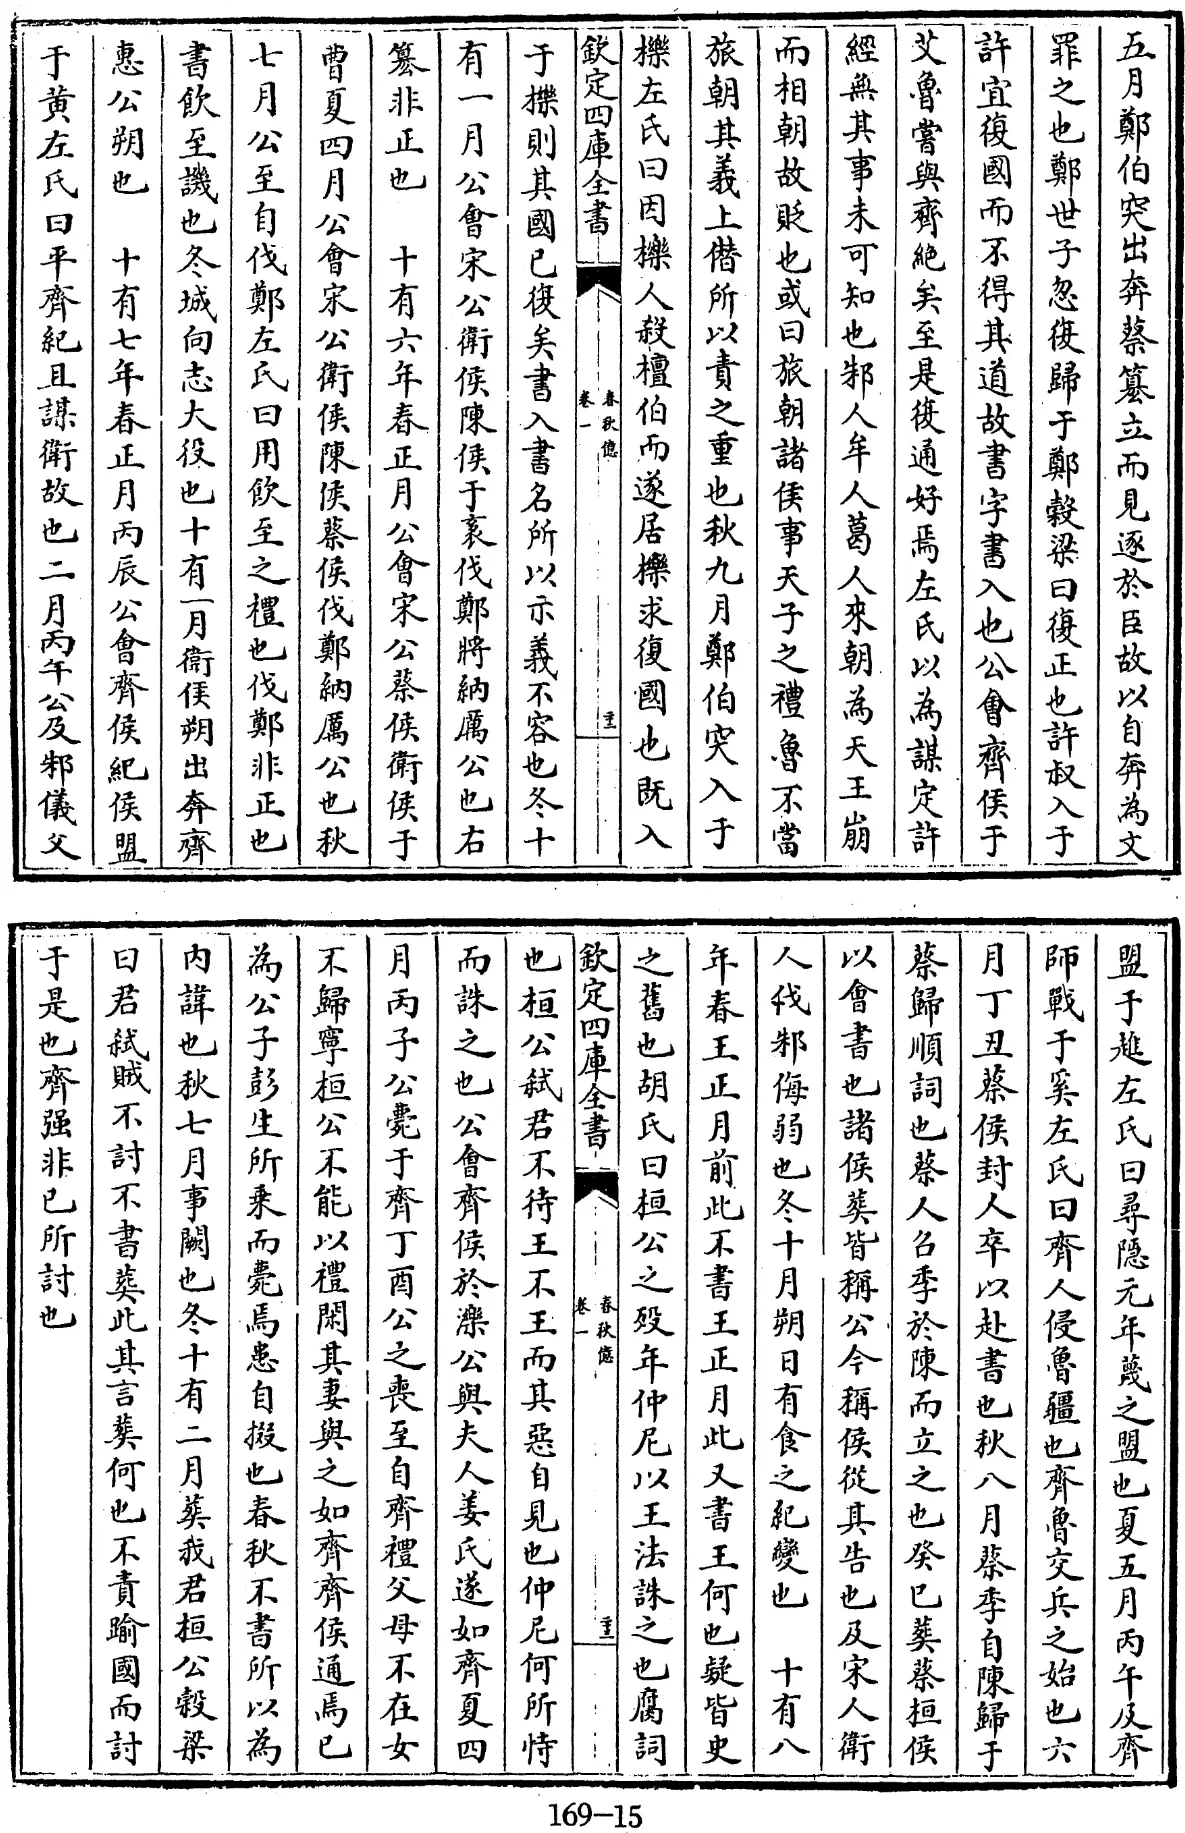 五月鄭伯突出奔蔡簒立而見逐於臣故以自奔為文
罪之也鄭世子忽復歸于鄭穀梁曰復正也許叔入于
許宜復國而不得其道故書字書入也公會齊侯于
艾魯嘗與齊絶矣至是復通好焉左氏以為謀定許
經無其事未可知也邾人牟人葛人來朝為天王崩
而相朝故貶也或曰旅朝諸侯事天子之禮魯不當
旅朝其義上僭所以責之重也秋九月鄭伯突入于
櫟左氏曰因櫟人殺檀伯而遂居櫟求復國也既入
欽定四庫全書
春秋億
卷一
于櫟則其國已復矣書入書名所以示義不容也冬十
有一月公會宋公衛侯陳侯于袲伐鄭將納厲公也右
簒非正也 十有六年春正月公會宋公蔡侯衛侯于
曹夏四月公會宋公衛侯陳侯蔡侯伐鄭納厲公也秋
七月公至自伐鄭左氏曰用飲至之禮也伐鄭非正也
書飲至譏也冬城向志大役也十有一月衛侯朔出奔齊
惠公朔也 十有七年春正月丙辰公會齊侯紀侯盟
于黄左氏曰平齊紀且謀衛故也二月丙午公及邾儀父
盟于趡左氏曰尋隠元年蔑之盟也夏五月丙午及齊
師戰于奚左氏曰齊人侵魯疆也齊魯交兵之始也六
月丁丑蔡侯封人卒以赴書也秋八月蔡季自陳歸于
蔡歸順詞也蔡人召季於陳而立之也癸巳葬蔡桓侯
以會書也諸侯葬皆稱公今稱侯從其告也及宋人衛
人伐邾侮弱也冬十月朔日有食之紀變也 十有八
年春王正月前此不書王正月此又書王何也疑皆史
之舊也胡氏曰桓公之殁年仲尼以王法誅之也腐詞
欽定四庫全書
春秋億
卷一
也桓公弑君不待王不王而其惡自見也仲尼何所恃
而誅之也公會齊侯於濼公與夫人姜氏遂如齊夏四
月丙子公薨于齊丁酉公之喪至自齊禮父母不在女
不歸寧桓公不能以禮閑其妻與之如齊齊侯通焉已
為公子彭生所乗而薨焉患自掇也春秋不書所以為
内諱也秋七月事闕也冬十有二月葬我君桓公穀梁
曰君弑賊不討不書葬此其言葬何也不責踰國而討
于是也齊强非已所討也
169-15